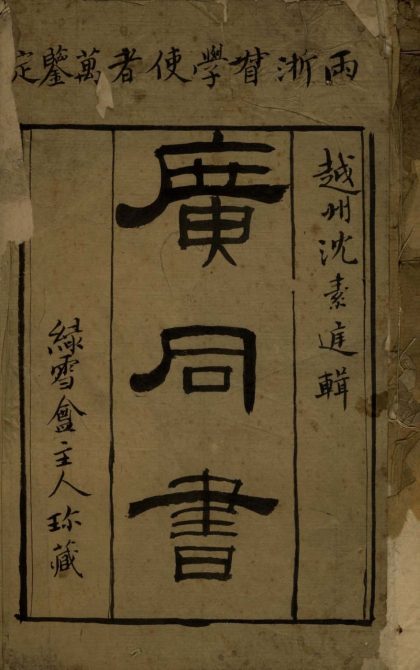 兩浙督學使者萬鑒定
越州沈素庭輯
廣同書
緑雪盦主人珎藏